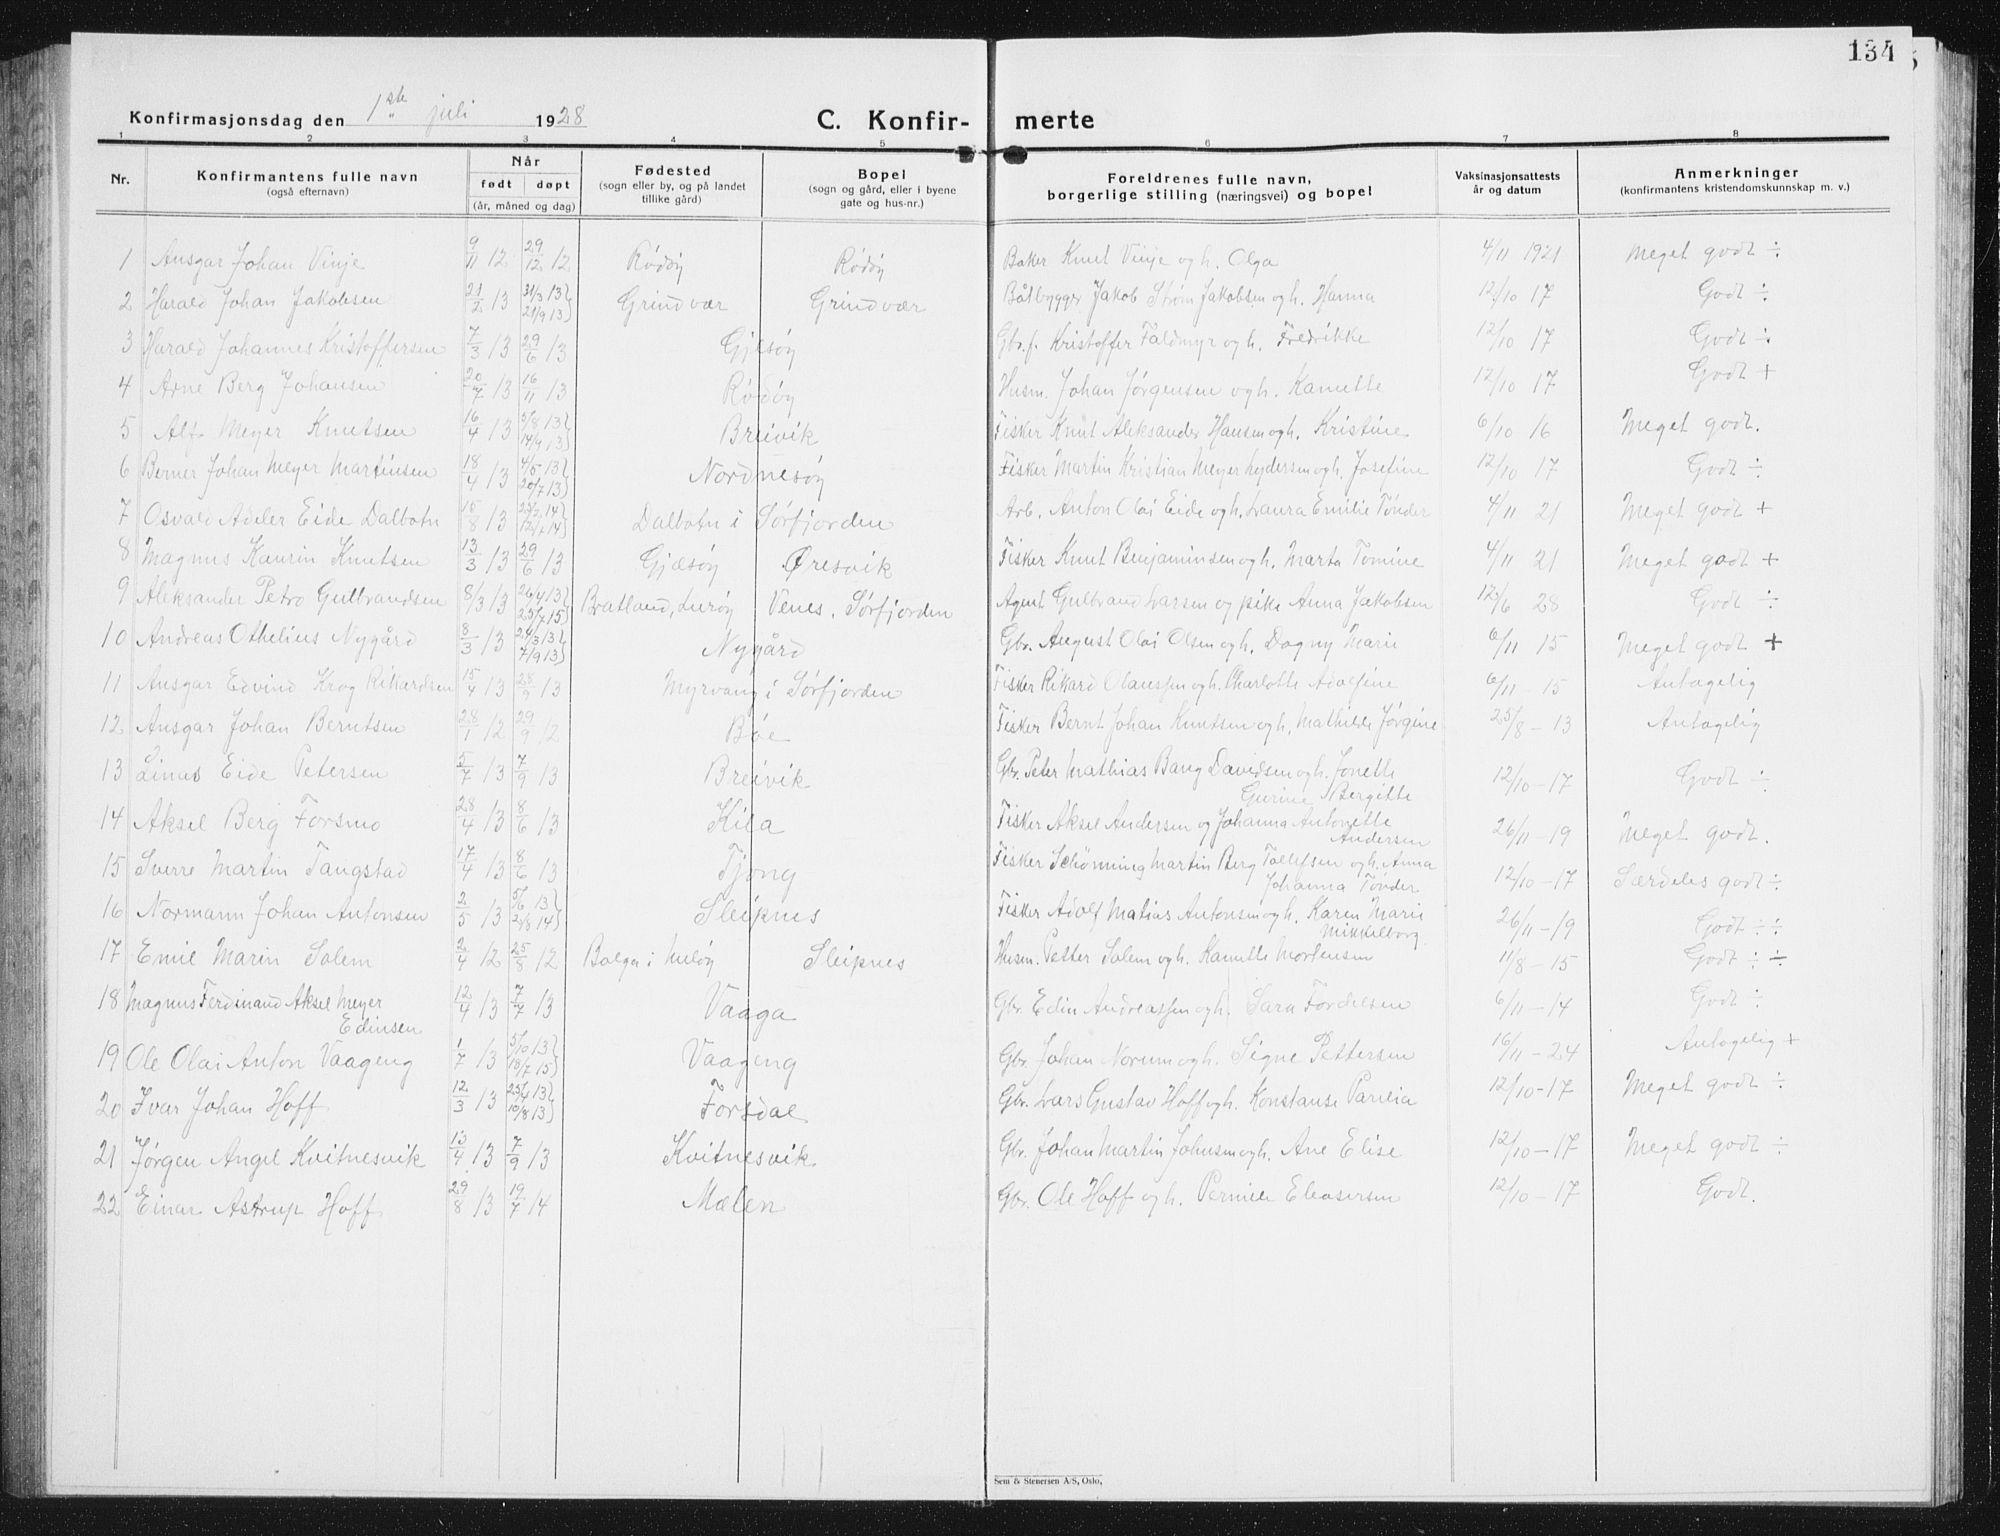 134
Konfirmasjonsdag den 1ste juli 1928
C. Konfir- merte
1 2 3 4 5 6 7 8
Nr. Konfirmantens fulle navn (også efternavn) Når født døpt (år, måned og dag) Fødested (sogn eller by, og på landet tillike gård) Bopel (sogn og gård, eller i byene gate og hus-nr.) Foreldrenes fulle navn, borgerlige stilling (næringsvei) og bopel Vaksinasjonsattests år og datum Anmerkninger (konfirmantens kristendomskunnskap m. v.)
1 Ansgar Johan Vinje 9/11 12 29/12 12 Rödöy Rödöy Baker Knut Vinje og h. Olga 4/11 1921 Meget godt ÷
2 Harald Johan Jakobsen 13 31/3 13 21/9 13 Grindvær Grindvær Båtbygger Jakob Strøm Jakobsen og h. Hanna 12/10 17 Godt ÷
3 Harald Johannes Kristoffersen 7/3 13 29/6 13 Gjesöy Gbr. f. Kristoffer Faldmyr og h. Fredrikke 12/10 17 Godt ÷
4 Arne Berg Johansen 20/7 13 16/11 13 Rödöy Husm. Johan Jörgensen og h. Kanutte 12/10 17 Godt +
5 Alf Meyer Knutsen 16/4 13 5/8 13 14/9 13 Breivik Fisker Knut Aleksander Hansen og h. Kristine 6/10 16 Meget godt.
6 Berner Johan Meyer Martinsen 18/4 13 4/5 13 20/7 13 Nordnesöy Fisker Martin Kristian Meyer og h. Josefine 12/10 17 Godt ÷
7 Osvald Adeler Eide Dalbotn 15/8 13 14 14 Dalbotn i Sørfjorden Arb. Anton Olai Eide og h. Laura Emilie Tönder 4/11 21 Meget godt +
8 Magnus Kaurin Knutsen 13/3 13 29/6 13 Gjæsöy Øresvik Fisker Knut Benjaminsen og h. Marta Tomine 4/11 21 Meget godt +
9 Aleksander Petro Gulbrandsen 8/3 13 26/4 13 25/7 15 Bratland, Luröy Venes, Sørfjorden Agent Gulbrand Larsen og pike Anna Jakobsen 12/6 28 Godt ÷
10 Andreas Othelius Nygård 8/3 13 24/3 13 7/9 13 Nygård Gbr. August Olai Olsen og h. Dagny Marie 6/11 15 Meget godt +
11 Ansgar Edvind Krog Rikardsen 15/4 13 28/9 13 Myrvang i Sørfjorden Fisker Rikard Olaussen og h. Charlotte Adolfine 6/11 - 15 Antagelig
12 Ansgar Johan Berntsen 28/1 12 29/9 12 Böe Fisker Bernt Johan Knutsen og h. Mathilde Jörgine 25/8 - 13 Antagelig
13 Linas Eide Petersen 5/7 13 7/9 13 Breivik Gbr. Peter Mathias Bang Davidsen og h. Jonette Gurine Bergitte 12/10 - 17 Godt ÷
14 Aksel Berg Forsmo 28/4 13 8/6 13 Kila Fisker Aksel Andersen og Johanna Antonette Andersen 26/11 - 19 Meget godt.
15 Sverre Martin Tangstad 17/4 13 8/6 13 Tjong Fisker Schönning Martin Berg Tollefsen og h. Anna Johanna Tönder 12/10 - 17 Særdeles godt ÷
16 Normann Johan Antonsen 2/5 13 5/6 13 14 Sleipnes Fisker Adolf Matias Antonsen og h. Karen Marie Mikkelborg 26/11 - 19 Godt ÷ ÷
17 Emil Marin Solem 2/4 12 25/8 12 Bolga i Melöy Sleipnes Husm. Petter Solem og h. Kanutte Mortensen 11/8 - 15 Godt ÷ ÷
18 Magnus Ferdinand Aksel Meyer Edinsen 12/4 13 7/7 13 Vaaga Gbr. Edin Andreassen og h. Sara Fordelsen 6/11 - 14 Godt ÷
19 Ole Olai Anton Vaageng 1/7 13 5/10 13 18/7 15 Vaageng Gbr. Johan Norum og h. Signe Pettersen 16/11 - 24 Antagelig +
20 Ivar Johan Hoff 12/3 13 25/4 13 10/8 13 Forsdal Gbr. Lars Gustav Hoff og h. Konstanse Parelia 12/10 - 17 Meget godt ÷
21 Jörgen Angel Kvitnesvik 13/4 13 7/9 13 Kvitnesvik Gbr. Johan Martin Johnsen og h. Ane Elise 12/10 - 17 Meget godt ÷
22 Einar Astrup Hoff 29/8 13 19/7 14 Mælen Gbr. Ole Hoff og h. Pernille Eleasersen 12/10 - 17 Godt.
Sem & Stenersen A/S, Oslo,